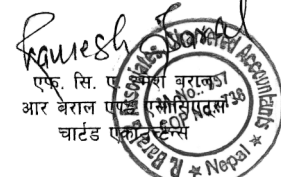 Ramesh Baral
एफ. सि. ए. रमेश बराल
आर बेराल एण्ड एसोसिएट्स
चार्टड एकाउन्टेन्स
R. Baral & Associates, Chartered Accountants
Nepal